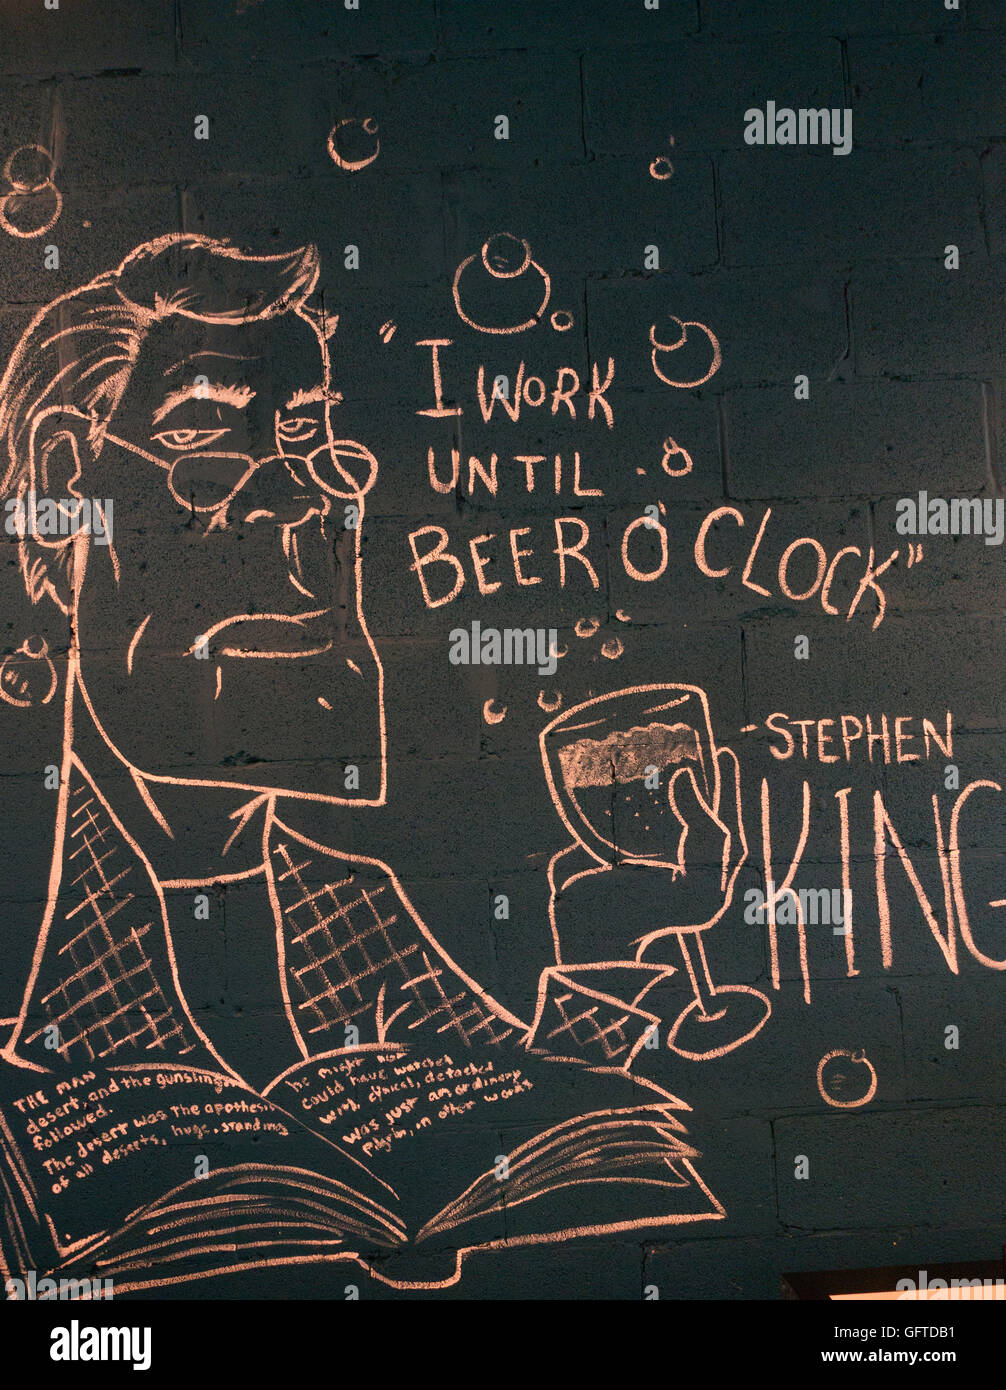 "I WORK
UNTIL
BEER O'CLOCK"
-STEPHEN
KING
THE MAN
desert, and the gunslinger
followed.
The desert was the apotheosis
of all deserts, huge, standing
he might not
could have watched
with cynical, detached
was just an ordinary
Pilgrim, in other words
alamy
alamy
alamy
Image ID: GFTDB1
www.alamy.com